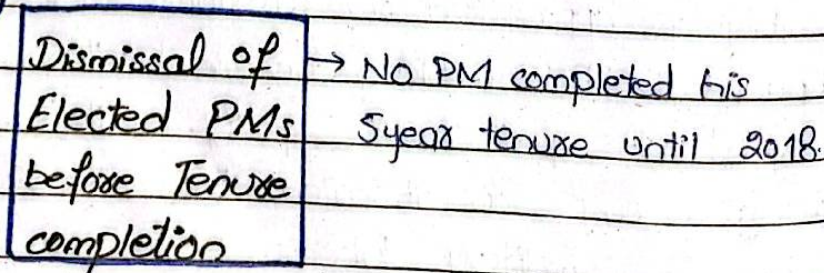 Dismissal of
Elected PMs
before Tenure
completion
→ No PM completed his
5year tenure until 2018.